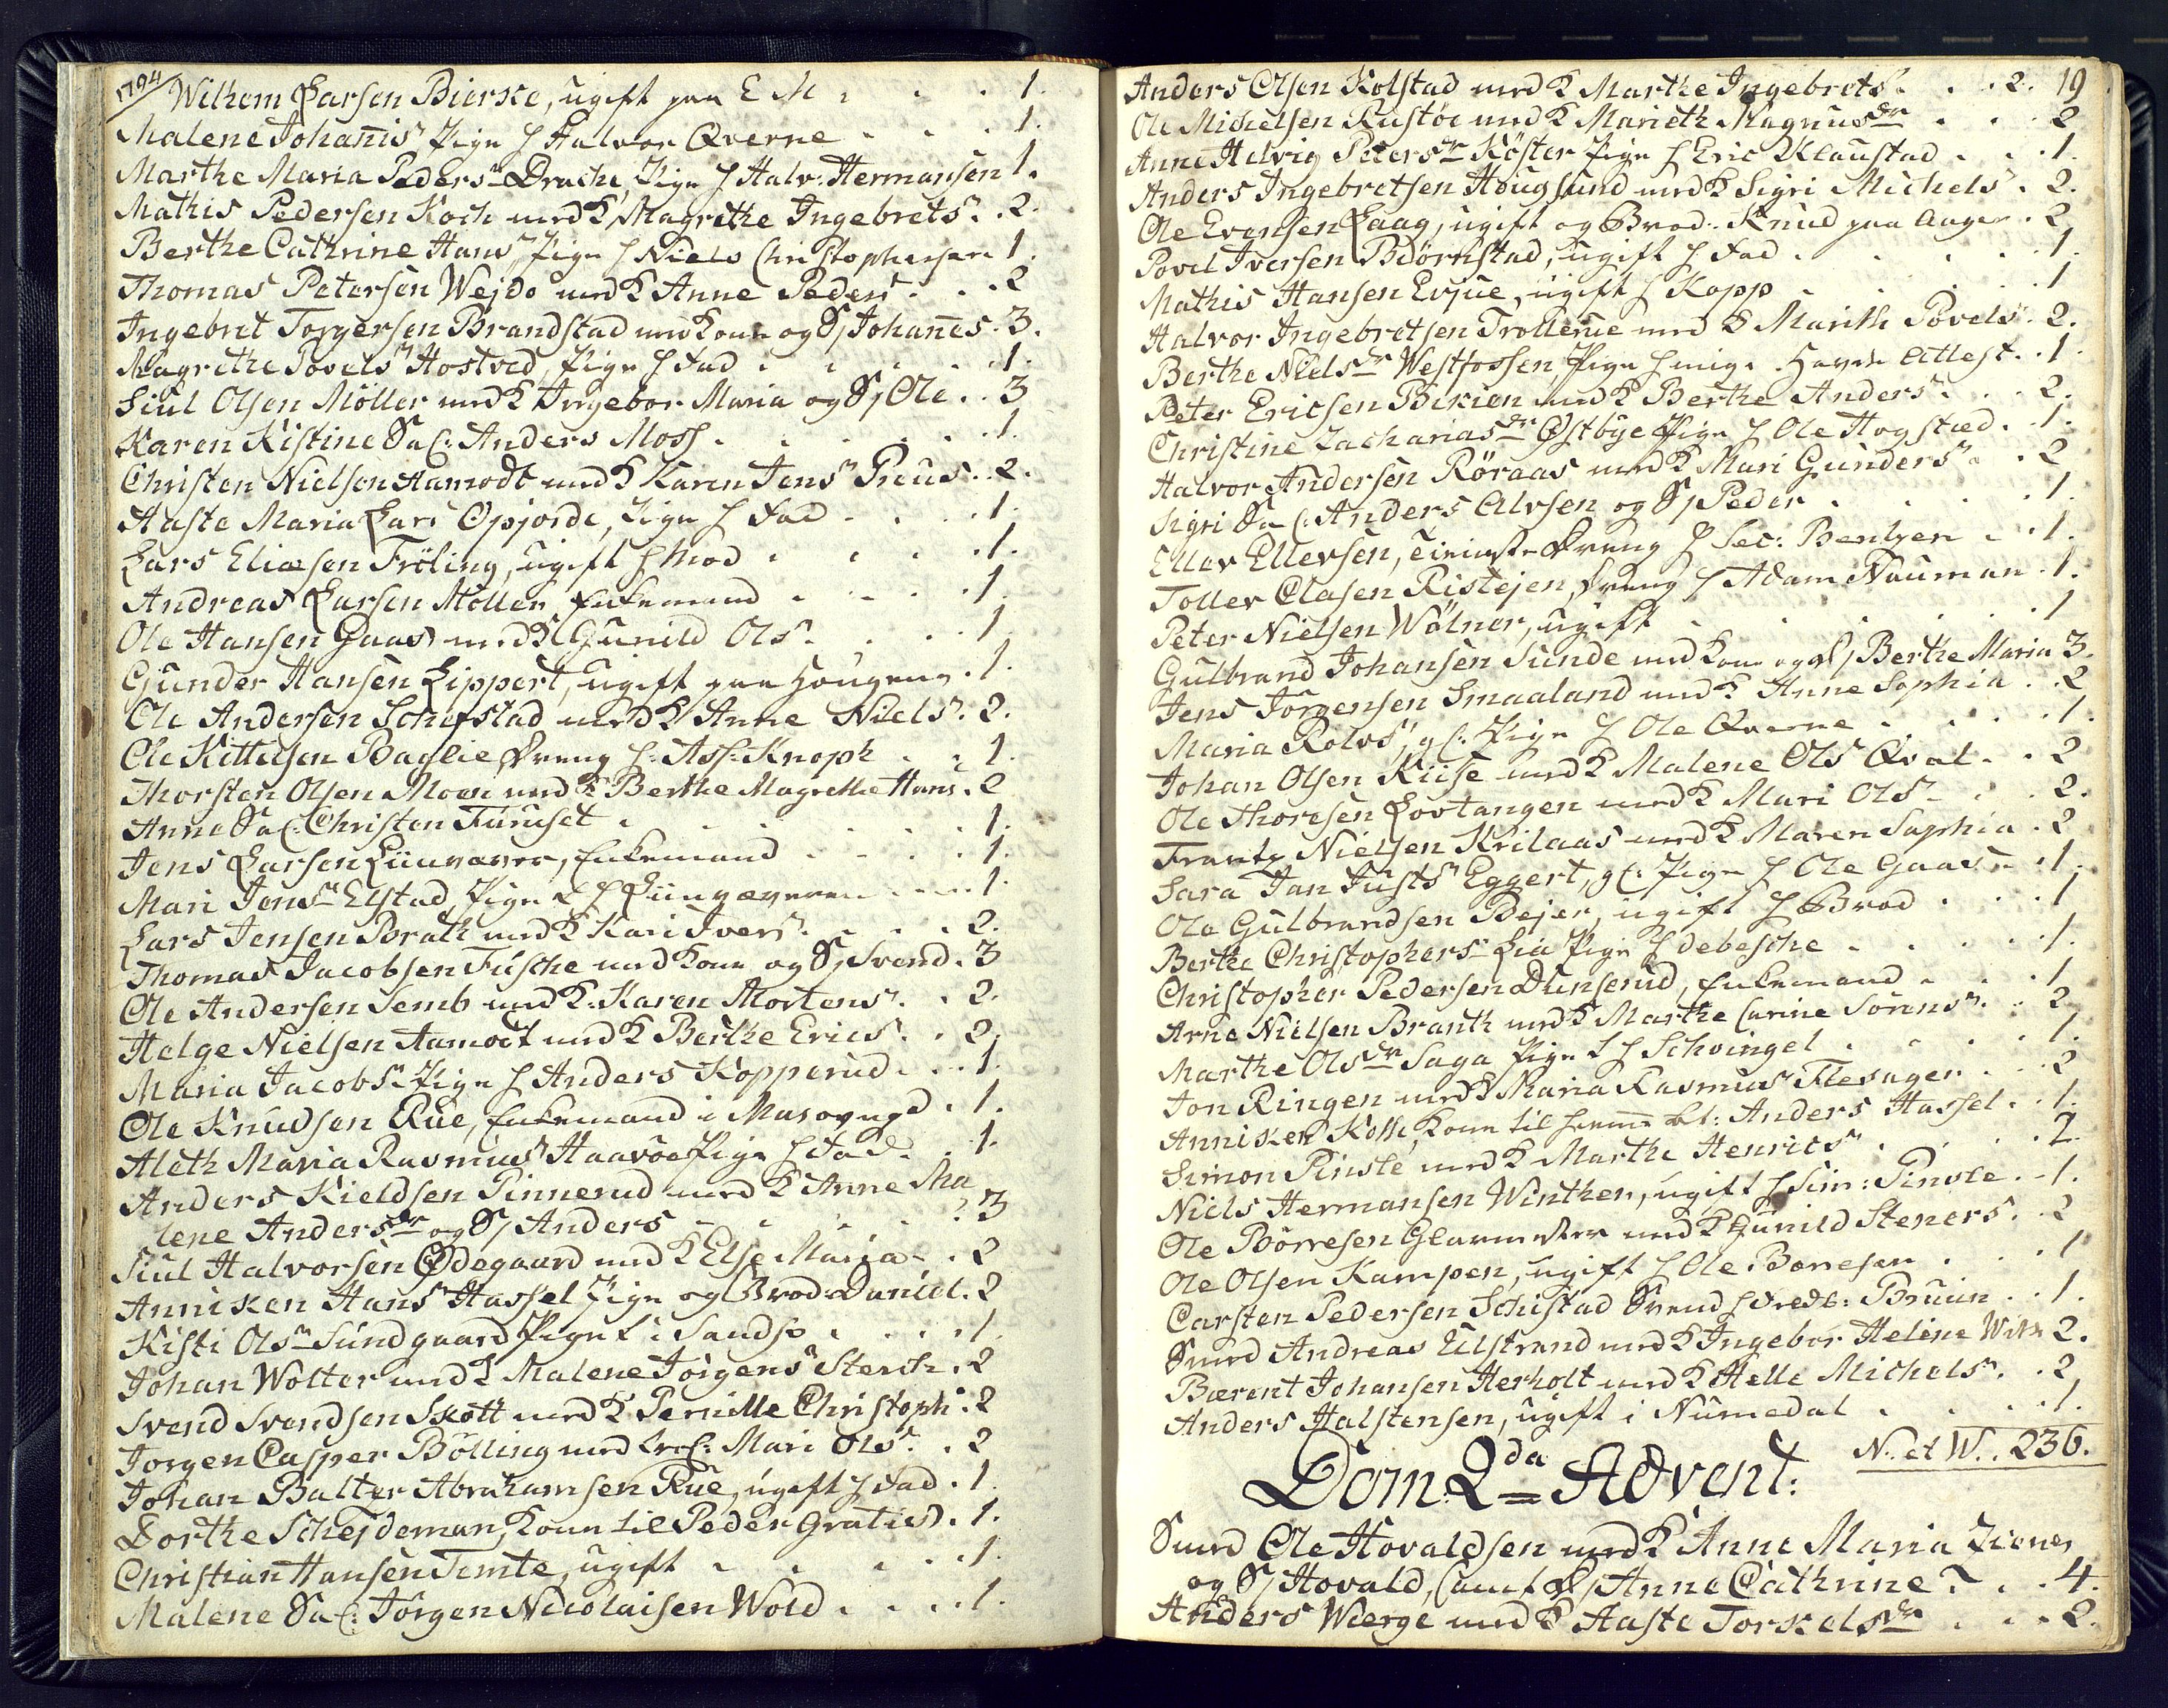 1794
Wilhem Larsen Bierke, ugift paa E M . . . 1.
Malene Johanis Pige H Halvor Qverne . . . 1.
Marthe Maria Peders Drache, Pige H Halv: Hermansen 1.
Mathis Pedersen Koch med K Magrethe Ingebrets . . 2.
Berthe Cathrine Hans Pige H Niels Christophersen 1.
Thomas Petersen Wejdo med K Anne Peders . . . 2
Ingebret Torgersen Brandstad med Kone og S/ Johanes . 3.
Magrethe Povels Hostved, Pige H Fad . . . 1.
Siul Olsen Möller med K Ingebor Maria og S/ Ole . . 3
Karen Kistine Sal: Anders Moss . . . 1.
Christen Nielsen Aamodt med K Karen Jens Preus . . 2.
Aaste Maria Lars Opjorde, Pige H Fad . . . 1.
Lars Eliæsen Fröling, ugift H Mod . . . 1.
Andreas Larsen Möller Enkemand . . . 1.
Ole Hansen Gaas med K Gunild Ols . . . 1.
Gunder Hansen Lippert, ugift paa Hougene . 1.
Ole Andersen Schefstad med K Anne Niels . 2.
Ole Kittelsen Baglie Dreng H: Ass: Knoph . . 1.
Thorsten Olsen Moen med K Berthe Magrethe Hans . 2
Anne Sal: Christen Furuset . . . 1.
Jens Larsen Liinvæver, Enkemand . . . 1.
Mari Jens Elstad, Pige H Liinvæveren . . . 1.
Lars Jensen Brath med K Kari Ivers . . . 2.
Thomas Jacobsen Fusche med Kone og S/ Svend . 3
Ole Andersen Semb med K. Karen Mortens . . 2.
Helge Nielsen Aamodt med K Berthe Erics . . 2.
Maria Jacobs Pige H Anders Kopperud . . . 1.
Ole Knudsen Rue, Enkemand i Masovnen . 1.
Aleth Maria Rasmus Haavoe Pige H Fad . . 1.
Anders Kieldsen Pinnerud med K Anne Ma
lene Andersdr og S/ Anders . . . 3
Siul Halvorsen Ødegaard med K Else Maria . . 2
Anniken Hans Hassel Pige og Brod: Daniel . 2
Kisti Ols Sundgaard Pige i Sandsv . . . 1.
Johan Wolter med K Malene Jörgens Sterch . 2
Svend Svendsen Skott med K Pernille Christoph . 2
Jorgen Casper Bölling med Mari Ols . . 2
Johan Balter Abrahamsen Rue, ugift H Fad . 1.
Dorthe Schejdeman, Kone til Peder Gratis . 1.
Christian Hansen Temte, ugift . . . 1.
Malene Sal: Jörgen Nicolaisen Wold . . . 1.
19
Anders Olsen Kolstad med K Marthe Ingebrets . . 2.
Ole Michelsen Rustöe med K Marieth Magnusdr . . . 2
Anne Helvig Peters Köster Pige H Eric Klaustad . . 1.
Anders Ingebretsen Hougsund med K Sigri Michels . 2.
Ole Evensen Laag, ugift og Brod: Knud paa Auger . 2
Povel Iversen Biörnstad, ugift H Fad . . . 1.
Mathis Hansen Evjue, ugift H Kopp . . . 1
Halvor Ingebretsen Trollerue med K Marith Povels . 2.
Berthe Niels Westfossen, Pige H mig. Havde Attest . . 1.
Peter Ericsen Birien med K Berthe Anders . . . 2.
Christine Zachariasdr Østbye Pige H Ole Hogstad . . 1.
Halvor Andersen Röraas med K Mari Gunders . . 2
Sigri Sal: Anders Alvsen og S/ Peder . . . 1.
Eller Ellersen, Dreng H Sec: Bentzen . . 1.
Toller Olasen Ristejen, Dreng H Adam Nauman . 1.
Peter Nielsen Wölner, ugift . . . 1
Gulbrand Johansen Sunde med Kone og D/ Berthe Maria 3.
Jens Jörgensen Smaaland med K Anne Sophia . . 2
Maria Rolvs, gl: Pige H Ole Qverne . . . 1.
Johan Olsen Kiise med K Malene Ols Qval . . 2
Ole Thoresen Lovtangen med K Mari Ols . . . 2.
Frantz Nielsen Krilaas med K Maren Saphia . 2
Sara Jan Justs Eggert, gl: Pige H Ole Gaas . . 1.
Ole Gulbrandsen Bejer, ugift H Brod . . . 1
Berthe Christophers Lia Pige H Debesche . . . 1.
Christopher Pedersen Dunserud, Enkemand . . . 1.
Arne Nielsen Branth med K Marthe Carine Sörens . . 2
Marthe Olsdr Saga Pige H Schvingel . . . 1.
Jon Ringen med K Maria Rasmus Flesager . . . 2
Anniken Kolle, Kone til Anders Hassel . . 1.
Simon Pinsle med K Marthe Henrics . . . 2.
Niels Hermansen Winther, ugift H Sim: Pinsle . . 1.
Ole Börresen Glarmester med K Gunild Steners . . 2
Ole Olsen Kampen, ugift H Ole Börresen . . . 1
Carsten Pedersen Schistad Svend H Fredr: Bruun . . 1.
Smed Andreas Ulstrand med K Ingebor Helene Wits 2.
Bærent Johansen Herholt med K Helle Michels . . 2
Anders Halstensen, ugift i Numedal . . . 1.
N. et W. . 236.
Dom. 2da Advent:
Smed Ole Hovaldsen med K Anne Maria Ziener
og S/ Hovald, samt D/ Anne Cathrine . . . 4.
Anders Wærge med K Aaste Torkelsdr . . . 2.